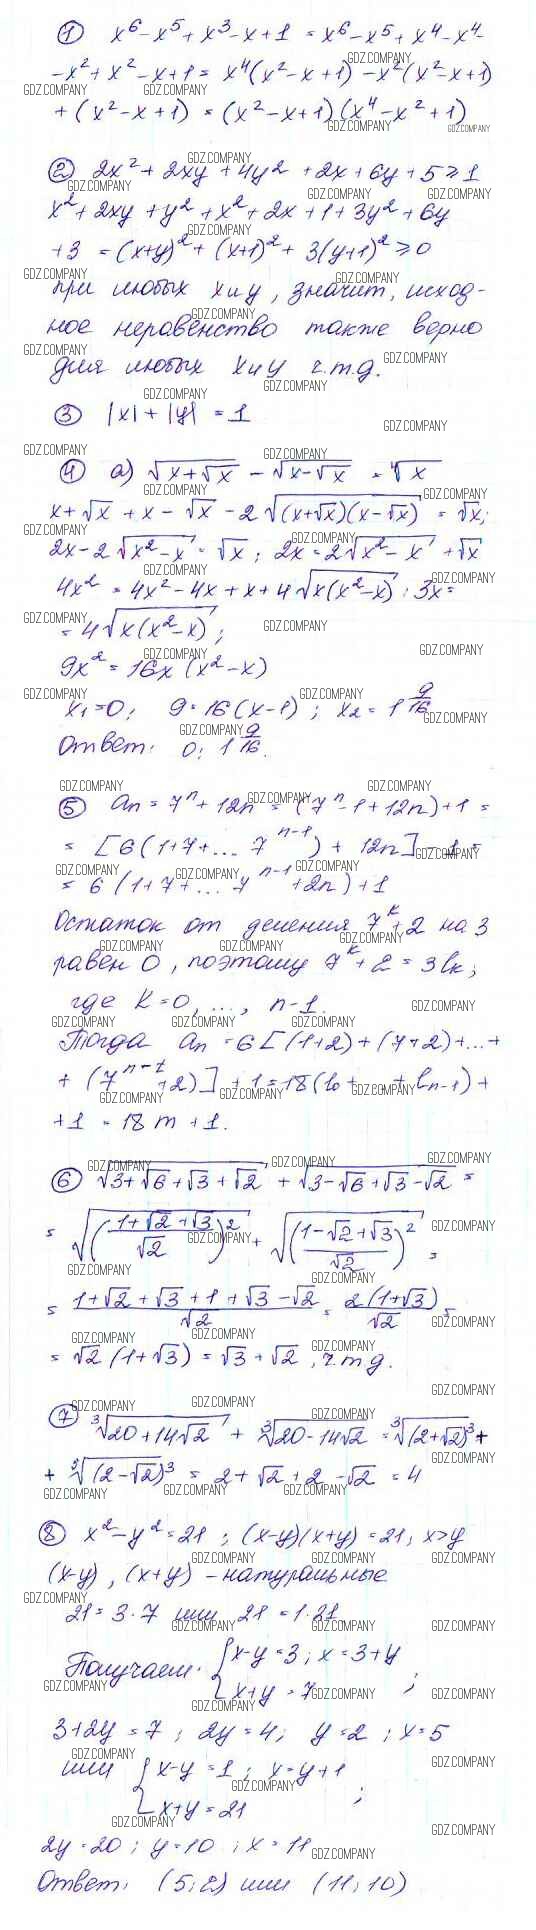 ① x⁶ - x⁵ + x³ - x + 1 = x⁶ - x⁵ + x⁴ - x⁴ -
- x² + x² - x + 1 = x⁴(x² - x + 1) - x²(x² - x + 1)
+ (x² - x + 1) = (x² - x + 1)(x⁴ - x² + 1)
② 2x² + 2xy + 4y² + 2x + 6y + 5 ≥ 1
x² + 2xy + y² + x² + 2x + 1 + 3y² + 6y
+ 3 = (x+y)² + (x+1)² + 3(y+1)² ≥ 0
при любых x и y, значит, исход-
ное неравенство также верно
для любых x и y ч.т.д.
③ |x| + |y| = 1
④ а) √(x+√x) - √(x-√x) = ⁴√x
x + √x + x - √x - 2√((x+√x)(x-√x)) = √x;
2x - 2√(x² - x) = √x; 2x = 2√(x² - x) + √x
4x² = 4x² - 4x + x + 4√(x(x² - x)); 3x =
= 4√(x(x² - x));
9x² = 16x(x² - x)
x₁ = 0; 9 = 16(x - 1); x₂ = 1 9/16
Ответ: 0; 1 9/16.
⑤ aₙ = 7ⁿ + 12n = (7ⁿ - 1 + 12n) + 1 =
= [6(1 + 7 + ... 7ⁿ⁻¹) + 12n] + 1 =
= 6(1 + 7 + ... 7ⁿ⁻¹ + 2n) + 1
Остаток от деления 7ᵏ + 2 на 3
равен 0, поэтому 7ᵏ + 2 = 3lₖ;
где k = 0, ..., n-1.
Тогда aₙ = 6[(1+2) + (7+2) + ... +
+ (7ⁿ⁻¹ + 2)] + 1 = 18(l₀ + ... + lₙ₋₁) +
+ 1 = 18m + 1.
⑥ √(3+√6+√3+√2) + √(3-√6+√3-√2) =
= √(((1+√2+√3)/√2)²) + √(((1-√2+√3)/√2)²) =
= (1+√2+√3+1+√3-√2)/√2 = 2(1+√3)/√2 =
= √2(1+√3) = √3 + √2, ч.т.д.
⑦ ³√(20+14√2) + ³√(20-14√2) = ³√((2+√2)³) +
+ ³√((2-√2)³) = 2 + √2 + 2 - √2 = 4
⑧ x² - y² = 21; (x-y)(x+y) = 21; x > y
(x-y), (x+y) - натуральные
21 = 3·7 или 21 = 1·21
Получаем: { x - y = 3; x = 3 + y
x + y = 7;
3 + 2y = 7; 2y = 4; y = 2; x = 5
или { x - y = 1; x = y + 1
x + y = 21;
2y = 20; y = 10; x = 11
Ответ: (5; 2) или (11; 10)
GDZ.COMPANY